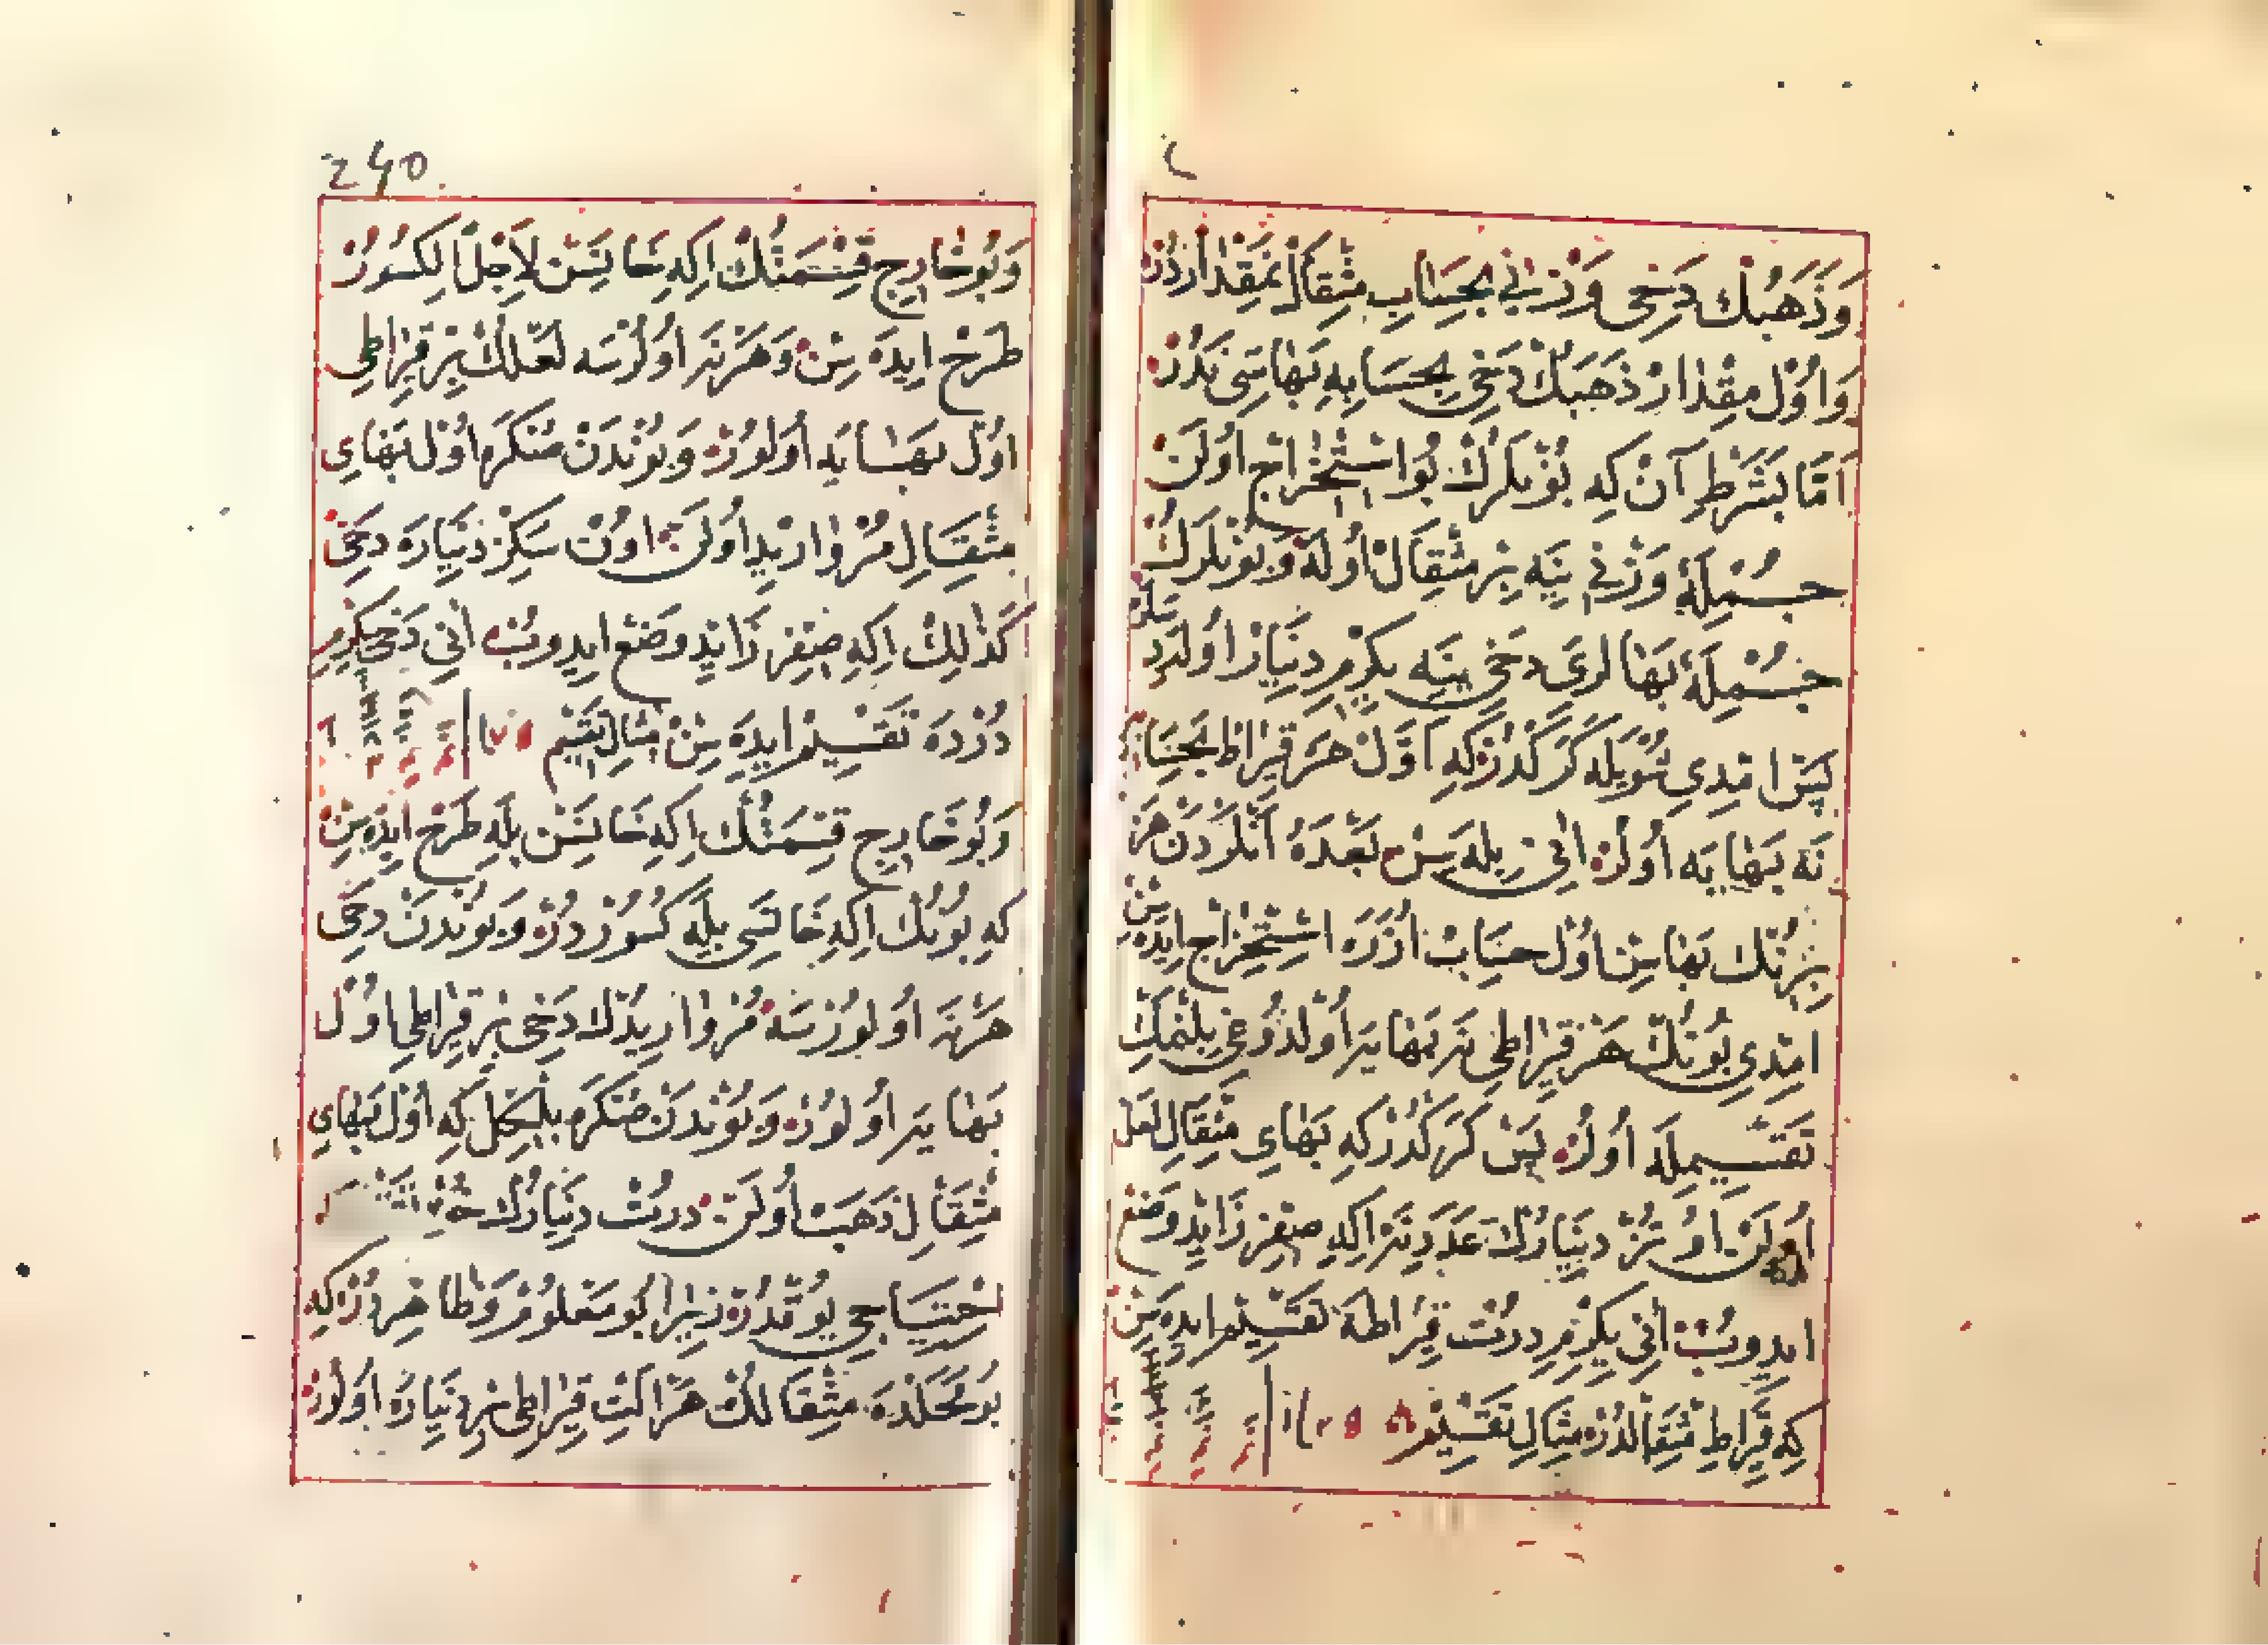 وَذَهَبُكْ دَخِى وَزْنِى بِحِسَابِ مِثْقَالْ نَمِقْدَارْدُرْ
وَاوُلْ مِقْدَارْ ذَهَبُكْ دَخِى بِحِسَابِهِ بَهَاسِى نَدُرْ
اَمَّا بَشَرْطِ آنْ كِه بُونْلَرُكْ بُو اسْتِخْرَاجْ اُولَنْ
جُمْلَهٔ وَزْنِى يِنَه بِرْ مِثْقَالْ اُولَه وَبُونْلَرُكْ
جُمْلَهٔ بَهَالَرِى دَخِى يِنَه يِكِرْمِ دِينَارْ اُولَه
پَسْ امْدِى شُويْلَه كَرَكْدُرْ كِه اَوَّلْ هَرْ قِيرَاطْ بِحِسَابْ
نَه بَهَايَه اُولُرْ انِى بِلَه سِنْ بَعْدَهُ آنْلَرْدَنْ هَرْ
بِرِنُكْ بَهَاسِنْ اوُلْ حِسَابْ اُزَرَه اسْتِخْرَاجْ ايدَه سِنْ
امْدِى بُونُكْ هَرْ قِيرَاطِى نَه بَهَايَه اُولْدُوغِى بِلْمَكْ
تَقْسِيمِلَه اُولُرْ پَسْ كَرَكْدُرْ كِه بَهَاىِ مِثْقَالِ لَعْل
اُولَنْ اوُتُزْ دِينَارُكْ عَدَدِنَه اِكِه صِفِرْ زَائِدْ وَضْع
ايدُوبْ انِى يِكِرْمِ دُرْتْ قِيرَاطَه تَقْسِيمْ ايدَه سِنْ
كِه قِيرَاطِ مِثْقَالْدُرْ مِثَالِ تَقْسِيمْ
240
وَبُو خَارِجِ قِسْمَتُكْ اِكِه خَانَسِنْ لِاَجْلِ الْكُسُورْ
طَرْحْ ايدَه سِنْ وَهَرْنَه اوُلُرْسَه لَعْلُكْ بِرْ قِيرَاطِى
اوُلْ بَهَايَه اُولُورْ وَبُونْدَنْ صُكْرَه اوُلْ بَهَاىِ
مِثْقَالِ مُرْوَارِيدْ اُولَنْ اوُنْ سَكِزْ دِينَارَه دَخِى
كَذٰلِكْ اِكِه صِفِرْ زَائِدْ وَضْع ايدُوبْ انِى دَخِى يِكِرْمِ
دُرْدَه تَقْسِيمْ ايدَه سِنْ مِثَالِ تَقْسِيمْ
وَبُو خَارِجِ قِسْمَتُكْ اِكِه خَانَسِنْ بِلَه طَرْحْ ايدَه سِنْ
كِه بُونُكْ اِكِه خَانَسِى بِلَه كُسُورْدُرْ وَبُونْدَنْ دَخِى
هَرْنَه اُولُورْسَه مُرْوَارِيدُكْ دَخِى بِرْ قِيرَاطِى اوُلْ
بَهَايَه اُولُورْ وَبُونْدَنْ صُكْرَه بِلْكِلْ كِه اوُلْ بَهَاىِ
مِثْقَالِ ذَهَبْ اُولَنْ دُرْتْ دِينَارُكْ
احْتِيَاجِى يُوقْدُرْ زِيرَا بُو مَعْلُومْ وَظَاهِرْدُرْ كِه
بُو مَحَلْدَه مِثْقَالُكْ هَرْ الْتِ قِيرَاطِى بِرْ دِينَارَه اوُلُورْ